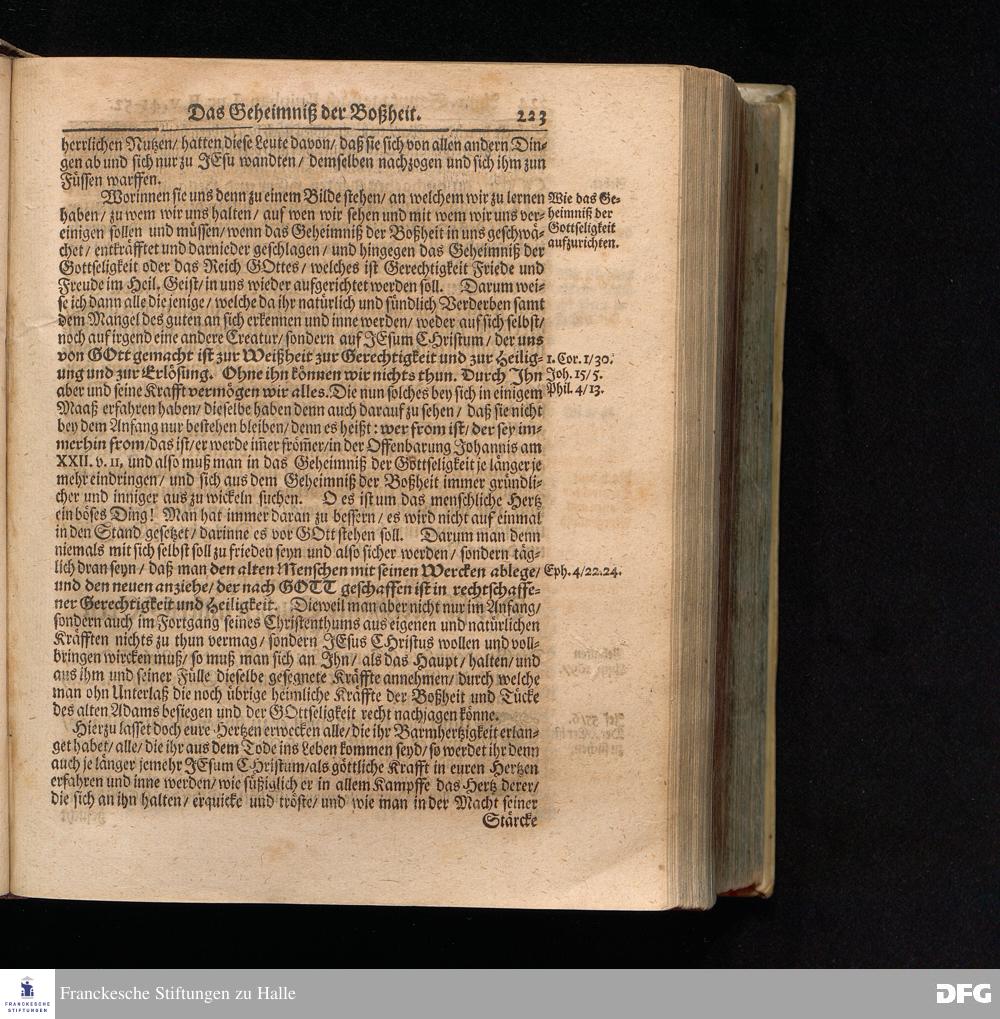 Das Geheimniß der Boßheit. 223
herrlichen Nutzen/ hatten diese Leute davon/ daß sie sich von allen andern Din-
gen ab und sich nur zu JEsu wandten/ demselben nachzogen und sich ihm zun
Füssen warffen.
Worinnen sie uns denn zu einem Bilde stehen/ an welchem wir zu lernen
haben/ zu wem wir uns halten/ auf wen wir sehen und mit wem wir uns ver-
einigen sollen und müssen/ wenn das Geheimniß der Boßheit in uns geschwä-
chet/ entkräfftet und darnieder geschlagen/ und hingegen das Geheimniß der
Gottseligkeit oder das Reich GOttes/ welches ist Gerechtigkeit Friede und
Freude im Heil. Geist/ in uns wieder aufgerichtet werden soll. Darum wei-
se ich dann alle die jenige/ welche da ihr natürlich und sündlich Verderben samt
dem Mangel des guten an sich erkennen und inne werden/ weder auf sich selbst/
noch auf irgend eine andere Creatur/ sondern auf JEsum CHristum/ der uns
von GOtt gemacht ist zur Weißheit zur Gerechtigkeit und zur Heilig-
ung und zur Erlösung. Ohne ihn können wir nichts thun. Durch Ihn
aber und seine Krafft vermögen wir alles. Die nun solches bey sich in einigem
Maaß erfahren haben/ dieselbe haben denn auch darauf zu sehen/ daß sie nicht
bey dem Anfang nur bestehen bleiben/ denn es heißt: wer from ist/ der sey im-
merhin from/ das ist/ er werde im̄er from̄er/ in der Offenbarung Johannis am
XXII. v. 11, und also muß man in das Geheimniß der Gottseligkeit je länger je
mehr eindringen/ und sich aus dem Geheimniß der Boßheit immer gründli-
cher und inniger aus zu wickeln suchen. O es ist um das menschliche Hertz
ein böses Ding! Man hat immer daran zu bessern/ es wird nicht auf einmal
in den Stand gesetzet/ darinne es vor GOtt stehen soll. Darum man denn
niemals mit sich selbst soll zu frieden seyn und also sicher werden/ sondern täg-
lich dran seyn/ daß man den alten Menschen mit seinen Wercken ablege/
und den neuen anziehe/ der nach GOTT geschaffen ist in rechtschaffe-
ner Gerechtigkeit und Heiligkeit. Dieweil man aber nicht nur im Anfang/
sondern auch im Fortgang seines Christenthums aus eigenen und natürlichen
Kräfften nichts zu thun vermag/ sondern JEsus CHristus wollen und voll-
bringen wircken muß/ so muß man sich an Ihn/ als das Haupt/ halten/ und
aus ihm und seiner Fülle dieselbe gesegnete Kräffte annehmen/ durch welche
man ohn Unterlaß die noch übrige heimliche Kräffte der Boßheit und Tücke
des alten Adams besiegen und der GOttseligkeit recht nachjagen könne.
Hierzu lasset doch eure Hertzen erwecken alle/ die ihr Barmhertzigkeit erlan-
get habet/ alle/ die ihr aus dem Tode ins Leben kommen seyd/ so werdet ihr denn
auch je länger jemehr JEsum CHristum/ als göttliche Krafft in euren Hertzen
erfahren und inne werden/ wie süßiglich er in allem Kampffe das Hertz derer/
die sich an ihn halten/ erquicke und tröste/ und wie man in der Macht seiner
Stärcke
Wie das Ge-
heimniß der
Gottseligkeit
aufzurichten.
1. Cor. 1/30.
Joh. 15/5.
Phil. 4/13.
Eph. 4/22.24.
FRANCKESCHE
STIFTUNGEN
Franckesche Stiftungen zu Halle
DFG